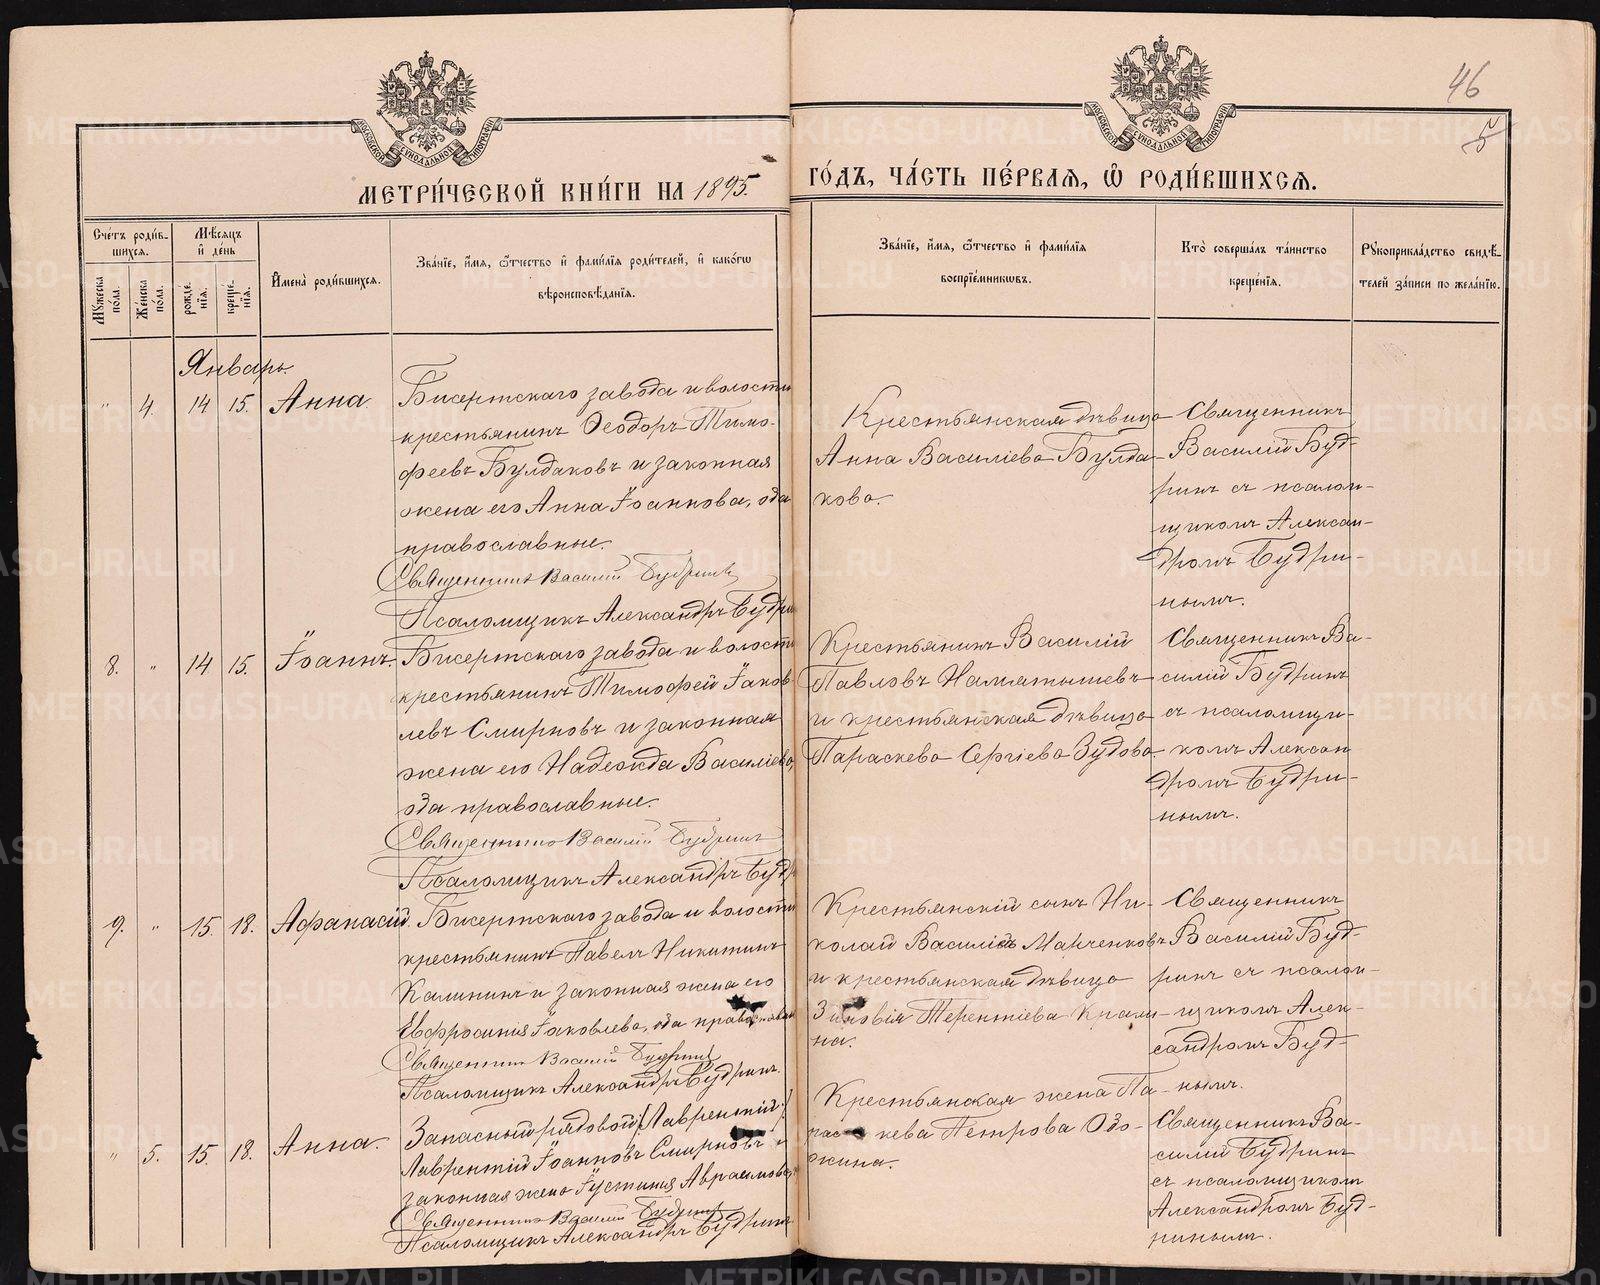 46
5
МЕТРИ́ЧЕСКОЙ КНИ́ГИ НА 1895.
ГО́ДЪ, ЧА́СТЬ ПЕ́РВАЯ, Ѡ҆ РОДИ́ВШИХСЯ.
Сче́тъ роди́в-
шихся.
Мꙋ́жеска по́ла.
Же́нска по́ла.
Мѣ́сяцъ
и҆ де́нь
рожде́нїя.
креще́нїя.
И҆мена̀ роди́вшихся.
Зва́нїе, и҆́мя, ѻ҆́тчество и҆ фами́лїя роди́телей, и҆ како́гѡ
вѣроисповѣ́данїя.
Зва́нїе, и҆́мя, ѻ҆́тчество и҆ фами́лїя
воспрїе́мникѡвъ.
Кто̀ соверша́лъ та́инство
креще́нїя.
Рꙋкоприкла́дство свидѣ́-
телей за́писи по жела́нїю.
Январь.
" 4. 14 15. Анна.
Бисертскаго завода и волости
крестьянинъ Ѳеодоръ Тимо-
феевъ Булдаковъ и законная
жена его Анна Іоаннова, оба
православные.
Священникъ Василій Будринъ
Псаломщикъ Александръ Будри
Крестьянская дѣвица
Анна Василіева Булда-
кова.
Священникъ
Василій Буд-
ринъ съ псалом-
щикомъ Алексан-
дромъ Будри-
нымъ.
8. " 14 15. Іоаннъ.
Бисертскаго завода и волости
крестьянинъ Тимофей Іаков
левъ Смирновъ и законная
жена его Надежда Василіева,
оба православные.
Священникъ Василій Будринъ
Псаломщикъ Александръ Будр
Крестьянинъ Василій
Павловъ Маматышевъ
и крестьянская дѣвица
Параскева Сергіева Зудова.
Священникъ Ва-
силій Будринъ
съ псаломщи-
комъ Алексан
дромъ Будри-
нымъ.
9. " 15. 18. Афанасій.
Бисертскаго завода и волости
крестьянинъ Павелъ Никитинъ
Калининъ и законная жена его
Евфросинія Іаковлева, оба православн
Священникъ Василій Будринъ
Псаломщикъ Александръ Будринъ.
Крестьянскій сынъ Ни-
колай Василіевъ Манченковъ
и крестьянская дѣвица
Зиновія Терентіева Крами-
на.
Священникъ
Василій Буд-
ринъ съ псалом-
щикомъ Алек-
сандромъ Буд-
нымъ.
" 5. 15. 18. Анна.
Запасный рядовой (Лаврентій)
Лаврентій Іоанновъ Смирновъ и
законная жена Іустинія Авраамова,
Священникъ Василій Будринъ
Псаломщикъ Александръ Будринъ
Крестьянская жена Па-
раскева Петрова Озо-
жина.
Священникъ Ва-
силій Будринъ
съ псаломщикомъ
Александромъ Буд-
ринымъ.
METRIKI.GASO-URAL.RU